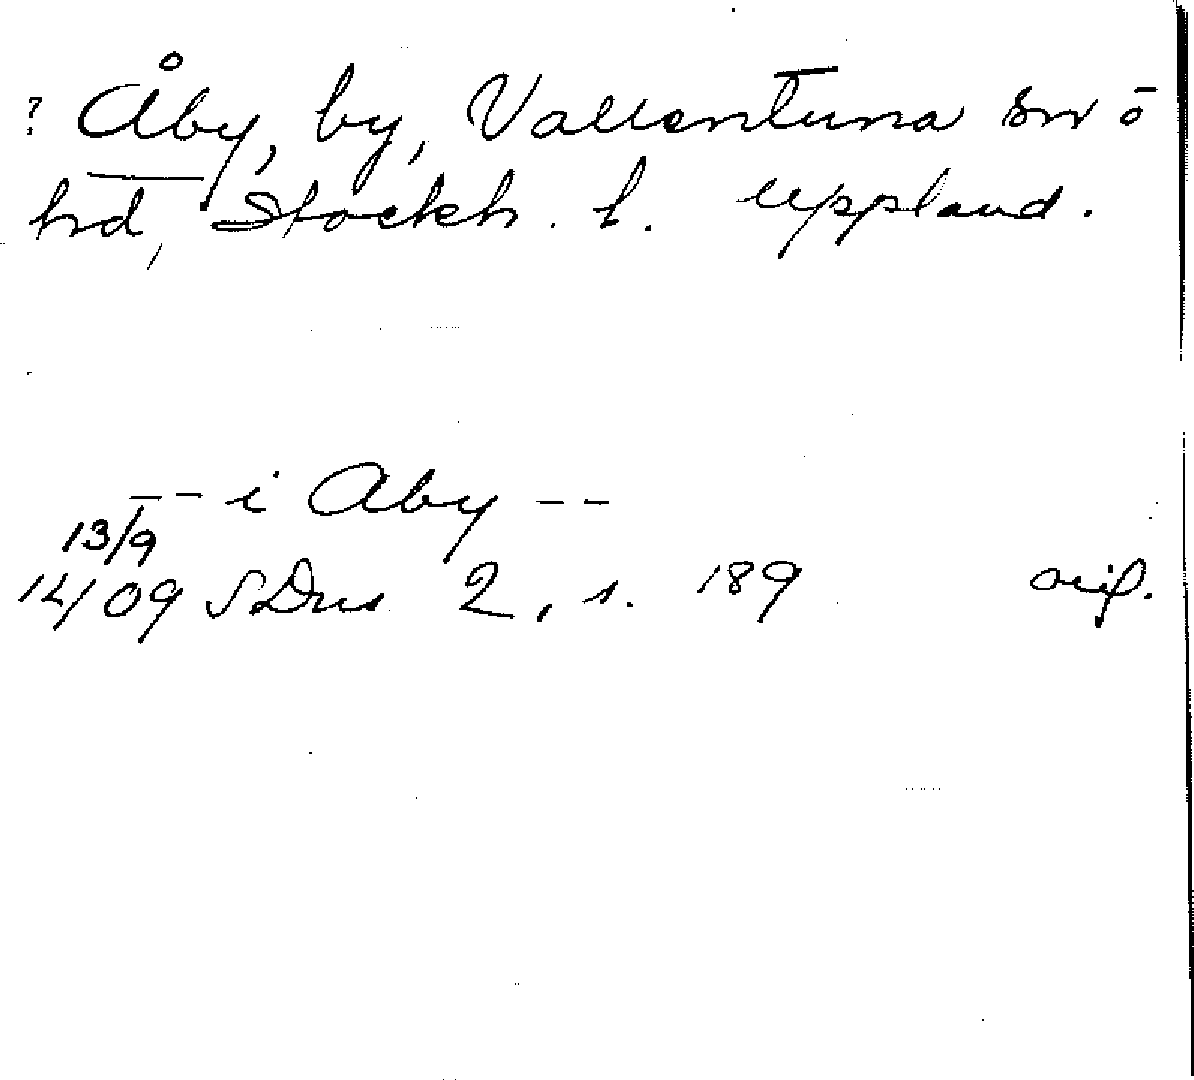 ? Åby, by, Vallentuna sn o
hd, Stockh. l. Uppland.
-- i Aby --
13/9
14/09 SDns 2, s. 189 orig.